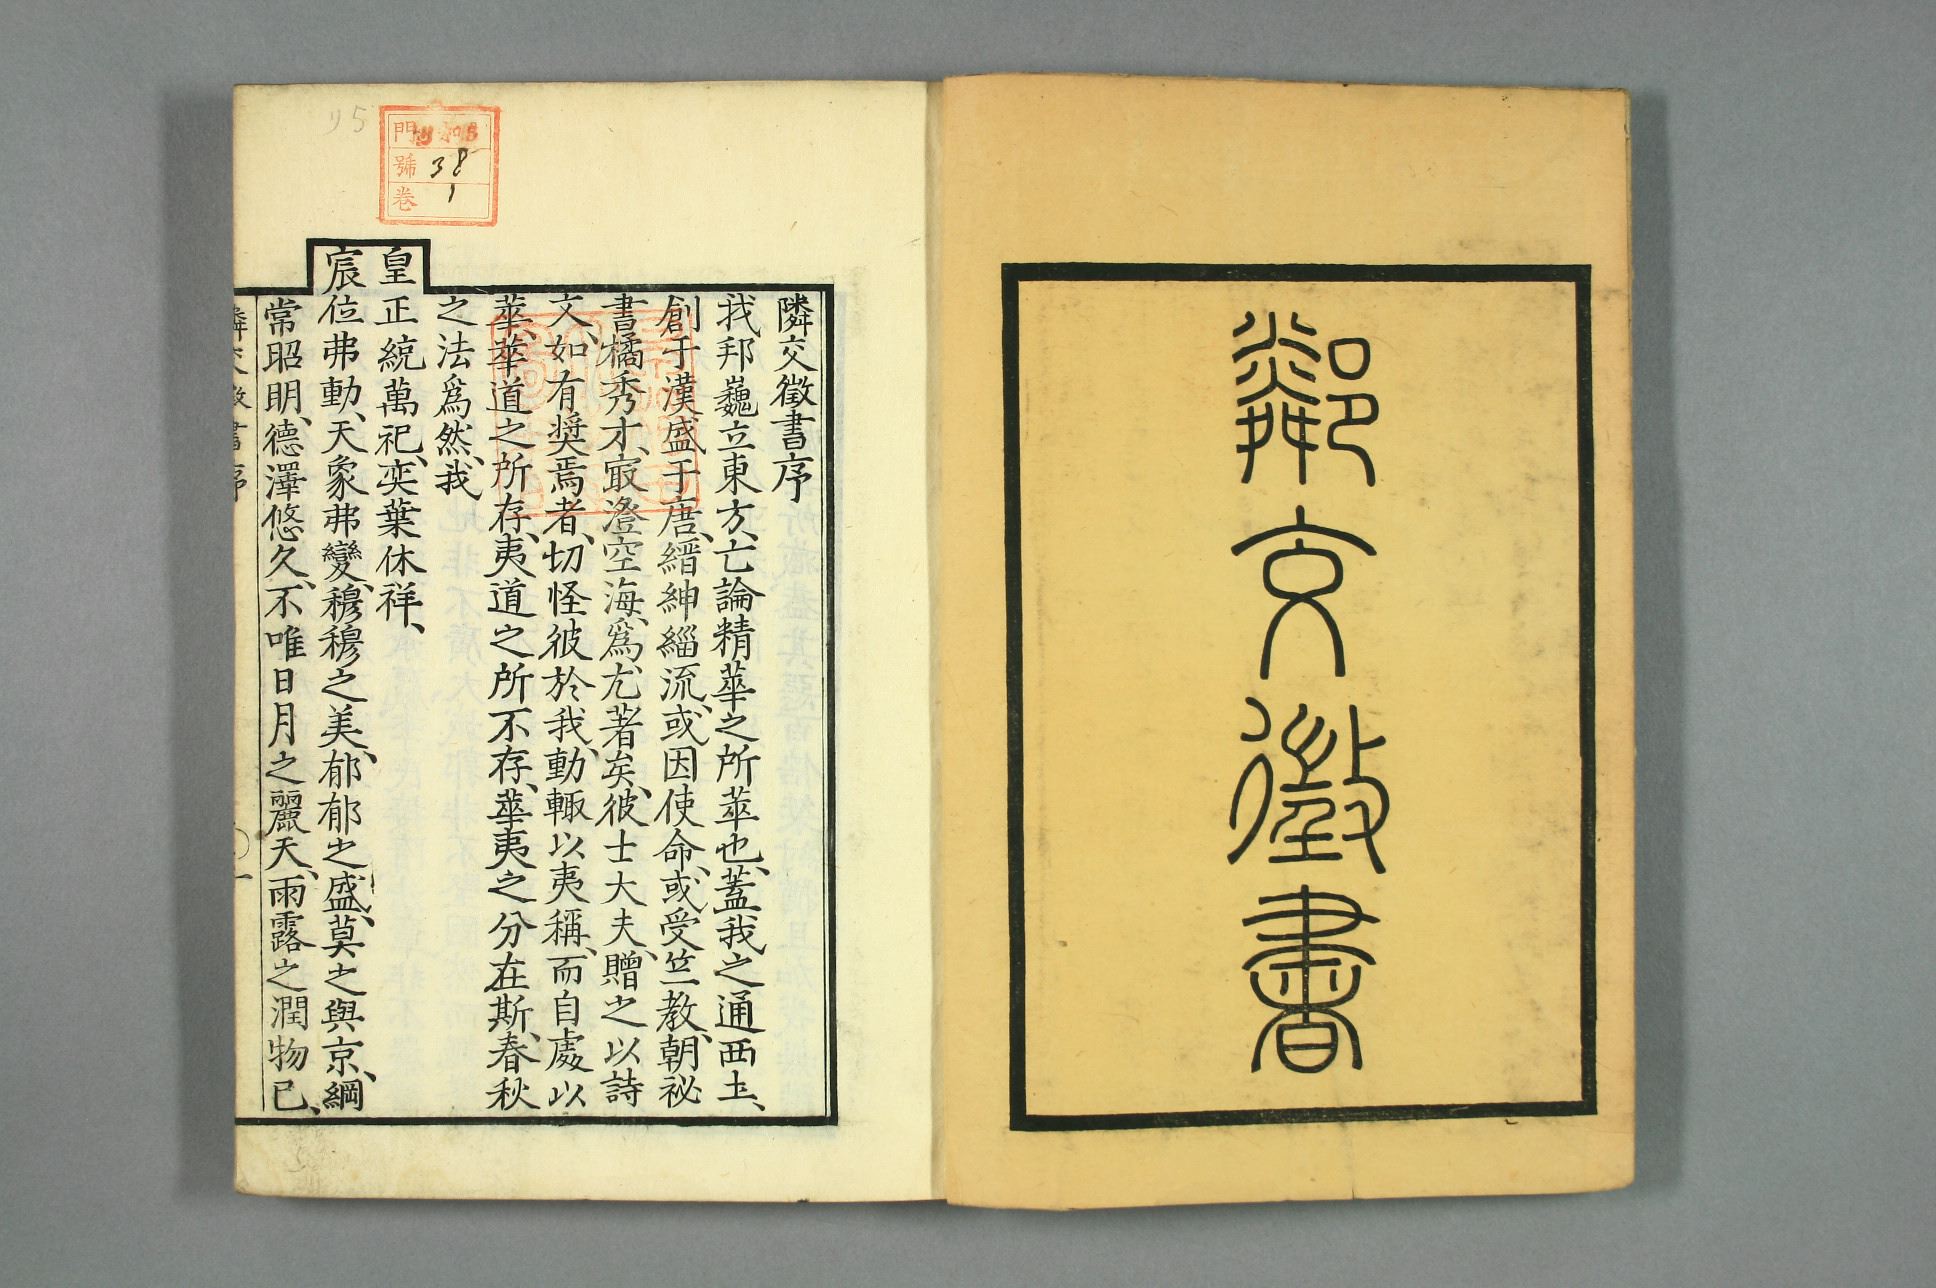 鄰交徵書
隣交徵書序
我邦巍立東方、亡論精華之所萃也、蓋我之通西土、
創于漢盛于唐、縉紳緇流、或因使命、或受竺教、朝祕
書橘秀才、㝡澄空海、爲尤著矣、彼士大夫、贈之以詩
文、如有奬焉者、切怪彼於我、動輙以夷稱、而自處以
華、華道之所存、夷道之所不存、華夷之分在斯、春秋
之法爲然、我
皇正統萬祀、奕葉休祥、
宸位弗動、天象弗變、穆穆之美、郁郁之盛、莫之與京、綱
常昭明、德澤悠久、不唯日月之麗天、雨露之潤物已、
隣交徵書序
一
門
號 38
卷 1
95